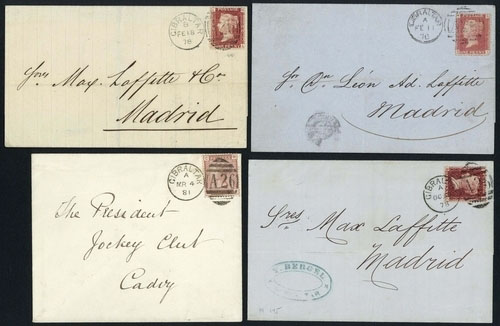 GIBRALTAR
FE 18
78
Sres. Max. Laffitte & Co.
Madrid
GIBRALTAR
A
FE 11
Sr. Dn. Léon Ad. Laffitte
Madrid
GIBRALTAR
A
MR 4
81
A26
The President
Jockey Club
Cadiz
GIBRALTAR
A
78
Sres Max Laffitte
Madrid
BERGEL